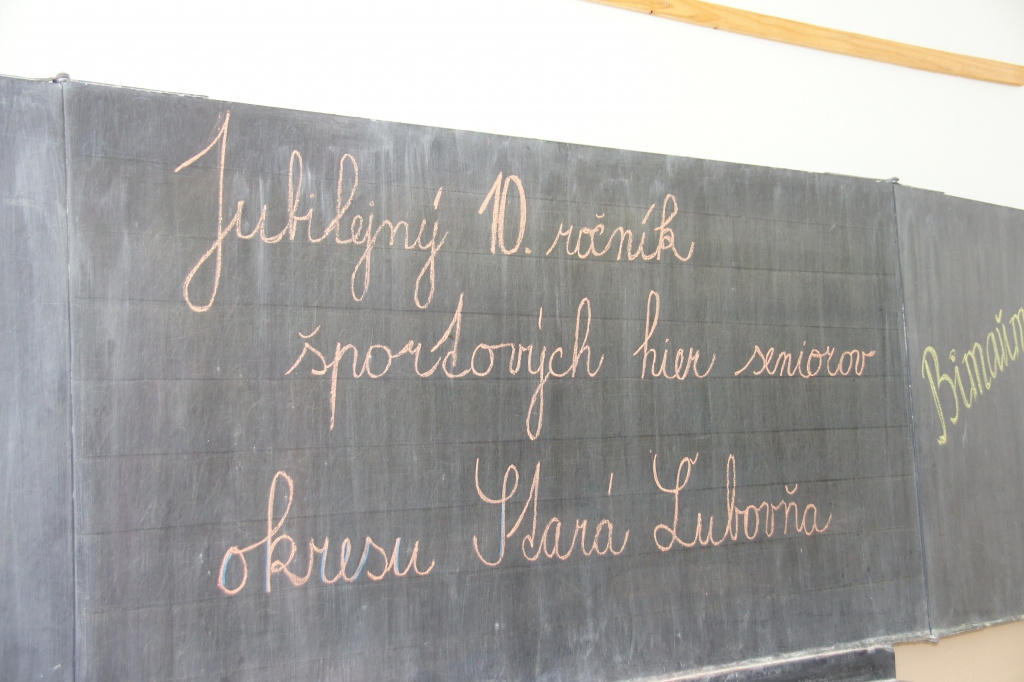 Jubilejný 10. ročník
športových hier seniorov
okresu Stará Ľubovňa